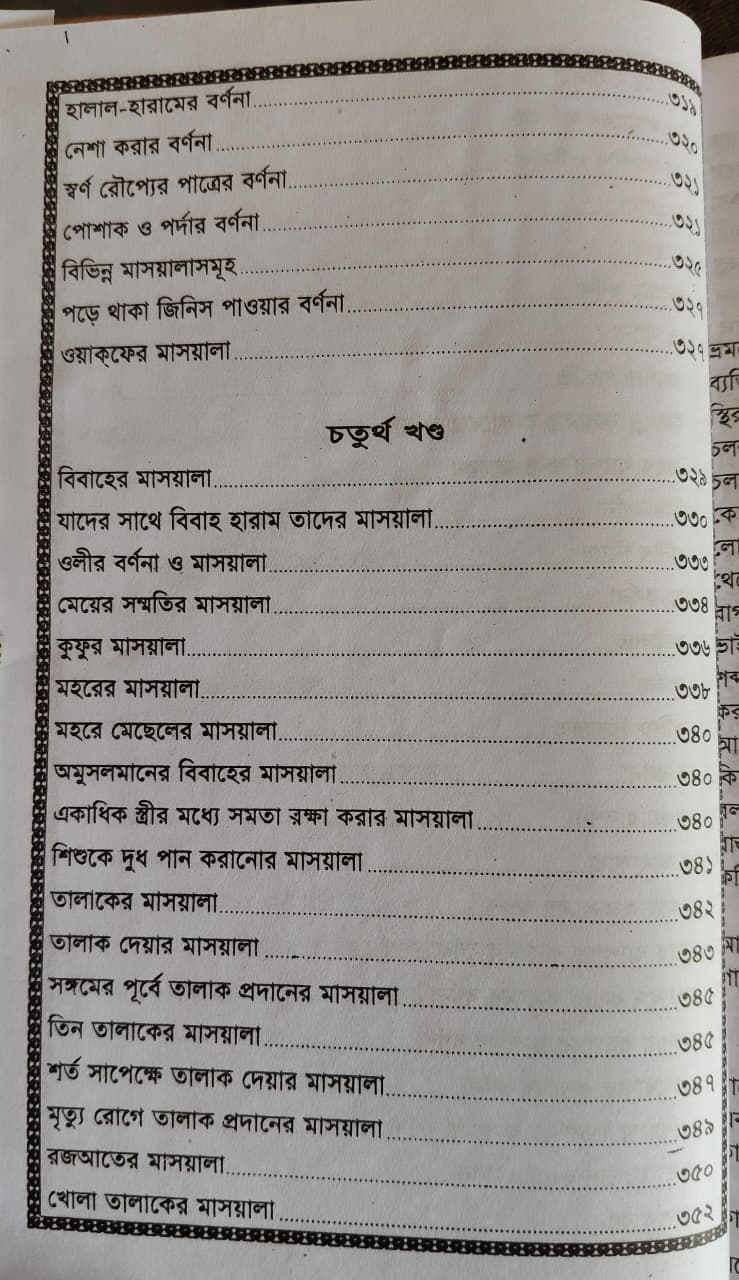 হালাল-হারামের বর্ণনা ৩১৯
নেশা করার বর্ণনা ৩২০
স্বর্ণ রৌপ্যের পাত্রের বর্ণনা ৩২১
পোশাক ও পর্দার বর্ণনা ৩২১
বিভিন্ন মাসয়ালাসমূহ ৩২৫
পড়ে থাকা জিনিস পাওয়ার বর্ণনা ৩২৭
ওয়াক্ফের মাসয়ালা ৩২৭
চতুর্থ খণ্ড
বিবাহের মাসয়ালা ৩২৯
যাদের সাথে বিবাহ হারাম তাদের মাসয়ালা ৩৩০
ওলীর বর্ণনা ও মাসয়ালা ৩৩৩
মেয়ের সম্মতির মাসয়ালা ৩৩৪
কুফুর মাসয়ালা ৩৩৬
মহরের মাসয়ালা ৩৩৮
মহরে মেছেলের মাসয়ালা ৩৪০
অমুসলমানের বিবাহের মাসয়ালা ৩৪০
একাধিক স্ত্রীর মধ্যে সমতা রক্ষা করার মাসয়ালা ৩৪০
শিশুকে দুধ পান করানোর মাসয়ালা ৩৪১
তালাকের মাসয়ালা ৩৪২
তালাক দেয়ার মাসয়ালা ৩৪৩
সঙ্গমের পূর্বে তালাক প্রদানের মাসয়ালা ৩৪৫
তিন তালাকের মাসয়ালা ৩৪৫
শর্ত সাপেক্ষে তালাক দেয়ার মাসয়ালা ৩৪৭
মৃত্যু রোগে তালাক প্রদানের মাসয়ালা ৩৪৯
রজআতের মাসয়ালা ৩৫০
খোলা তালাকের মাসয়ালা ৩৫২